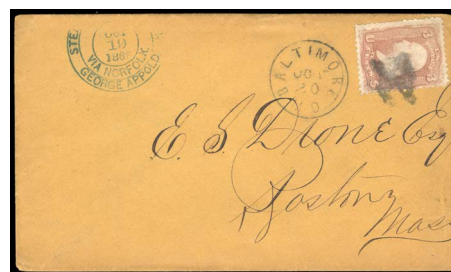 OCT
19
VIA NORFOLK.
GEORGE APPOLD
BALTIMORE
OCT
20
E. S. Dione Esq
Boston
Mass